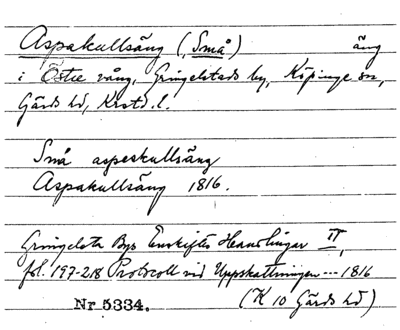 Aspakullsäng (, Små) äng
i Östre vång, Gringelstads by, Köpinge sn,
Gärds hd, Krstd. l.
Små aspeskullsäng
Aspakullsäng 1816.
Gringelsta Bys Enskiftes Handlingar II,
fol. 197-218 Protocoll vid Uppskattningen --- 1816
Nr 5334. (K 10 Gärds hd)